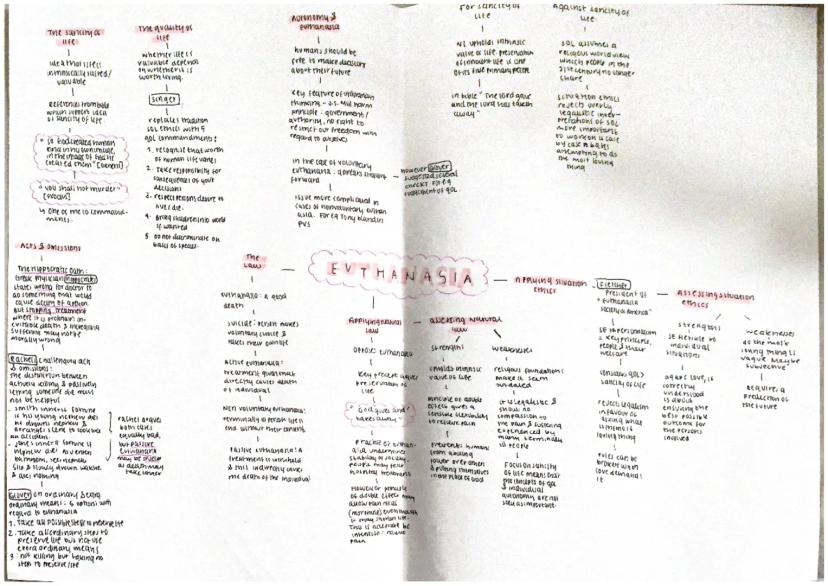 The sanctity of
life
idea that life is
intrinsically sacred/
valuable
References from bible
which support idea
of sanctity of life
"So God created human
kind in his own image,
in the image of God he
created them" [Genesis]
"you shall not murder"
[Exodus]
↳ one of the 10 command-
ments.
The quality of
life
whether life is
valuable depends
on whether it is
worth living.
Singer
replaces tradition
SOL ethics with 5
QOL commandments:
1. recognise that worth
of human life varies
2. Take responsibility for
consequences of your
decisions
3. respect persons desire to
live/die.
4. Bring children into world
if wanted
5. Do not discriminate on
basis of species.
Autonomy &
euthanasia
humans should be
free to make decisions
about their future
key feature of utilitarian
thinking - J.S. Mill harm
principle: government/
authority, no right to
restrict our freedom with
regard to ourselves
in the case of voluntary
euthanasia: appears straight
forward
issue more complicated in
cases of nonvoluntary euthan
asia. for eg Tony bland in
PVS
however Glover
suggested several
checks for eg
judgement of qol
For sanctity of
life
NL upholds intrinsic
value of life. preservation
of innocent life is one
of its five primary precepts
in bible "The lord gave
and the lord has taken
away"
Against sanctity of
life
SOL assumes a
religious world view
which people in the
21st century no longer
share
situation ethics
rejects overly
legalistic inter-
pretations of SOL
more important
to work on a case
by case basis
attempting to do
the most loving
thing
Acts & omissions
The Hippocratic Oath:
Greek physician Hippocrates
states wrong for doctor to
do something that would
cause death of a person
but stopping treatment
where it is prolonging in-
evitable death & increasing
suffering may not be
morally wrong
Rachels challenging acts
& omissions:
The distinction between
actively killing & passively
letting someone die may
not be helpful
- smith inherits fortune
if his young nephew dies
he drowns nephew &
arranges scene to look like
an accident.
- Jones inherits fortune if
nephew dies. as enters
bathroom, sees nephew
slip & slowly drown watches
& does nothing
rachels argues
both cases
equally bad,
but passive
euthanasia
may be crueler
as death may
take longer
Glover on ordinary & extra
ordinary means: options with
regard to euthanasia
1. Take all possible steps to preserve life
2. Take all ordinary steps to
preserve life but not use
extra ordinary means
3. not killing but taking no
step to preserve life
The
Law
euthanasia: a good
death
suicide: person makes
voluntary choice &
takes their own life
Active euthanasia:
treatment given that
directly causes death
of individual
Passive euthanasia: a
treatment is withheld
& this indirectly causes
the death of the individual
EUTHANASIA
Applying natural
law
opposes euthanasia
key precept again
preservation of
life
"God gives and
takes away"
However principle
of double effect may
Assessing Natural
Law
strengths
upholds intrinsic
value of life
principle of double
effect gives a
sensible flexibility
to relieve pain
prevents humans
from gaining
power over others
& putting themselves
in the place of God
weaknesses
religious foundations
make it seem
outdated
it is legalistic &
shows no
compassion to
the pain & suffering
experienced by
many terminally
ill people
focus on sanctity
of life means that
the concepts of qol
& individual
autonomy are not
seen as important
Applying situation
ethics
Fletcher
President of
"euthanasia
society of America"
SE to personalism
= key principle,
people & their
welfare
considers QOL >
sanctity of life
rejects legalism
in favour of
asking what
is the most
loving thing
rules can be
broken when
love demands
it
Assessing situation
ethics
strengths
SE flexible to
individual
situations
agape love, is
correctly
understood
is about
ensuring the
best possible
outcome for
the persons
involved
weaknesses
as the most
loving thing is
vague. maybe
subjective
requires a
prediction of
the future